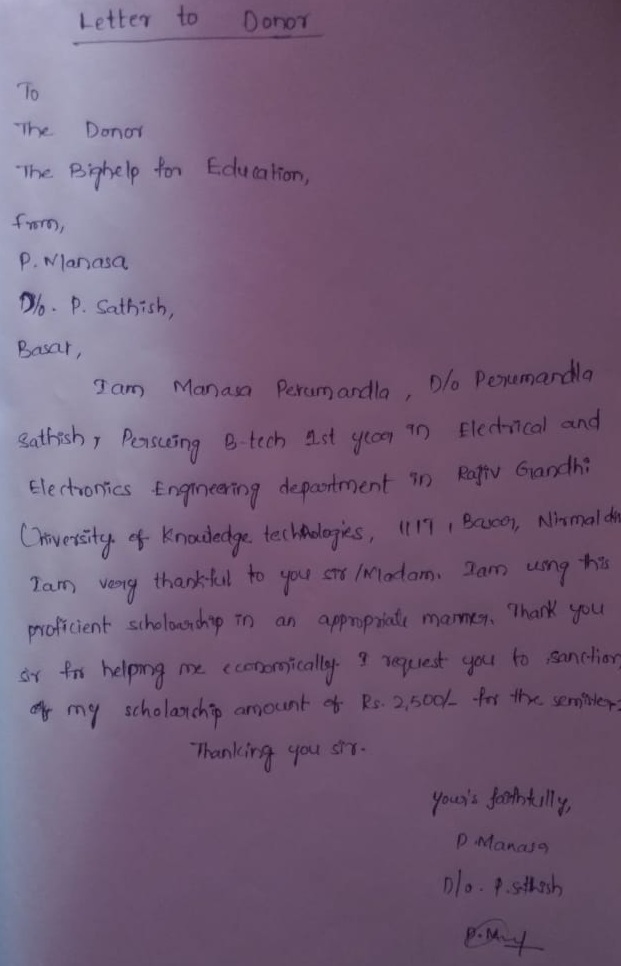 Letter to Donor
To
The Donor
The Bighelp for Education,
from,
P. Manasa
D/o. P. Sathish,
Basar,
Iam Manasa Perumandla, D/o Perumandla
Sathish, Persueing B-tech 1st year in Electrical and
Electronics Engineering department in Rajiv Gandhi
University of Knowledge technologies, IIIT, Basar, Nirmal
Iam very thankful to you sir/Madam. Iam using this
proficient scholarship in an appropriate manner. Thank you
sir for helping me economically. I request you to sanction
of my scholarship amount of Rs. 2,500/- for the semister.
Thanking you sir.
your's faithfully,
P. Manasa
D/o. P. Sathish